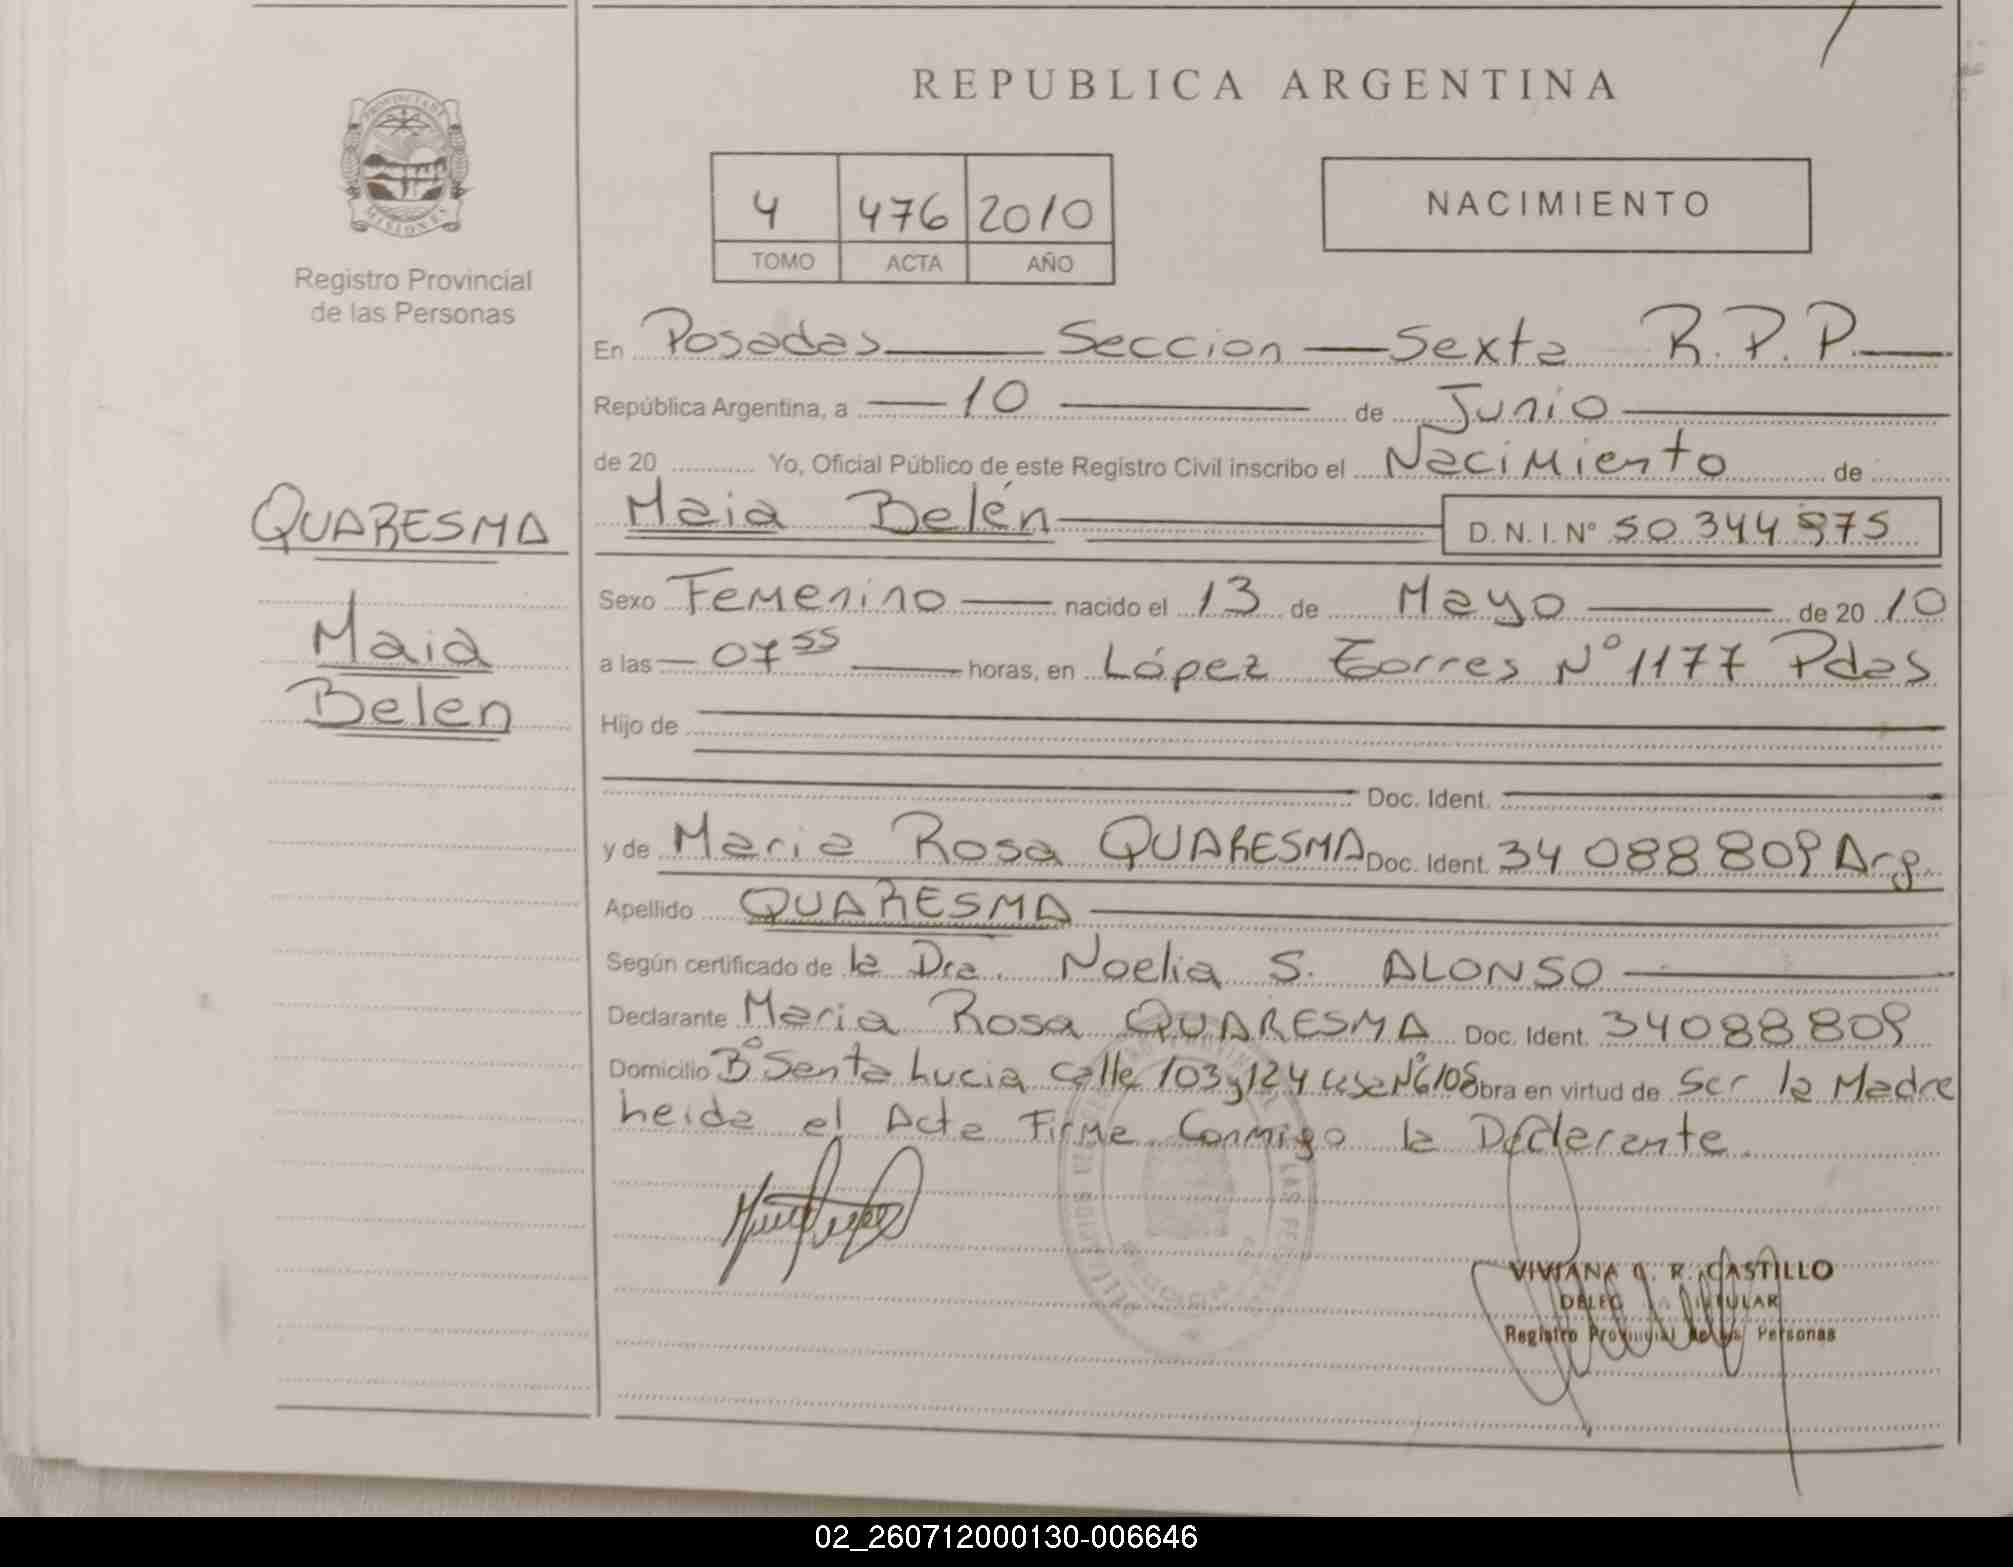 REPUBLICA ARGENTINA
PROVINCIA DE
MISIONES
Registro Provincial
de las Personas
4 476 2010
TOMO ACTA AÑO
NACIMIENTO
En Posadas Seccion Sexta R.P.P.
República Argentina, a 10 de Junio
de 20 Yo, Oficial Público de este Registro Civil inscribo el Nacimiento de
QUARESMA
Maia Belen
Maia Belén D.N.I. Nº 50 344 975
Sexo Femenino nacido el 13 de Mayo de 20 10
a las 07 55 horas, en López Torres Nº 1177 Pdas
Hijo de
Doc. Ident.
y de Maria Rosa QUARESMA Doc. Ident. 34 088 809 Arg.
Apellido QUARESMA
Según certificado de la Dra. Noelia S. ALONSO
Declarante Maria Rosa QUARESMA Doc. Ident. 34088809
Domicilio Bº Santa Lucia calle 103 y 124 casa Nº 6108 Obra en virtud de Ser la Madre
heida el Acta Firma Conmigo la Declarante
VIVIANA R. CASTILLO
Registro Provincial de las Personas
02_260712000130-006646